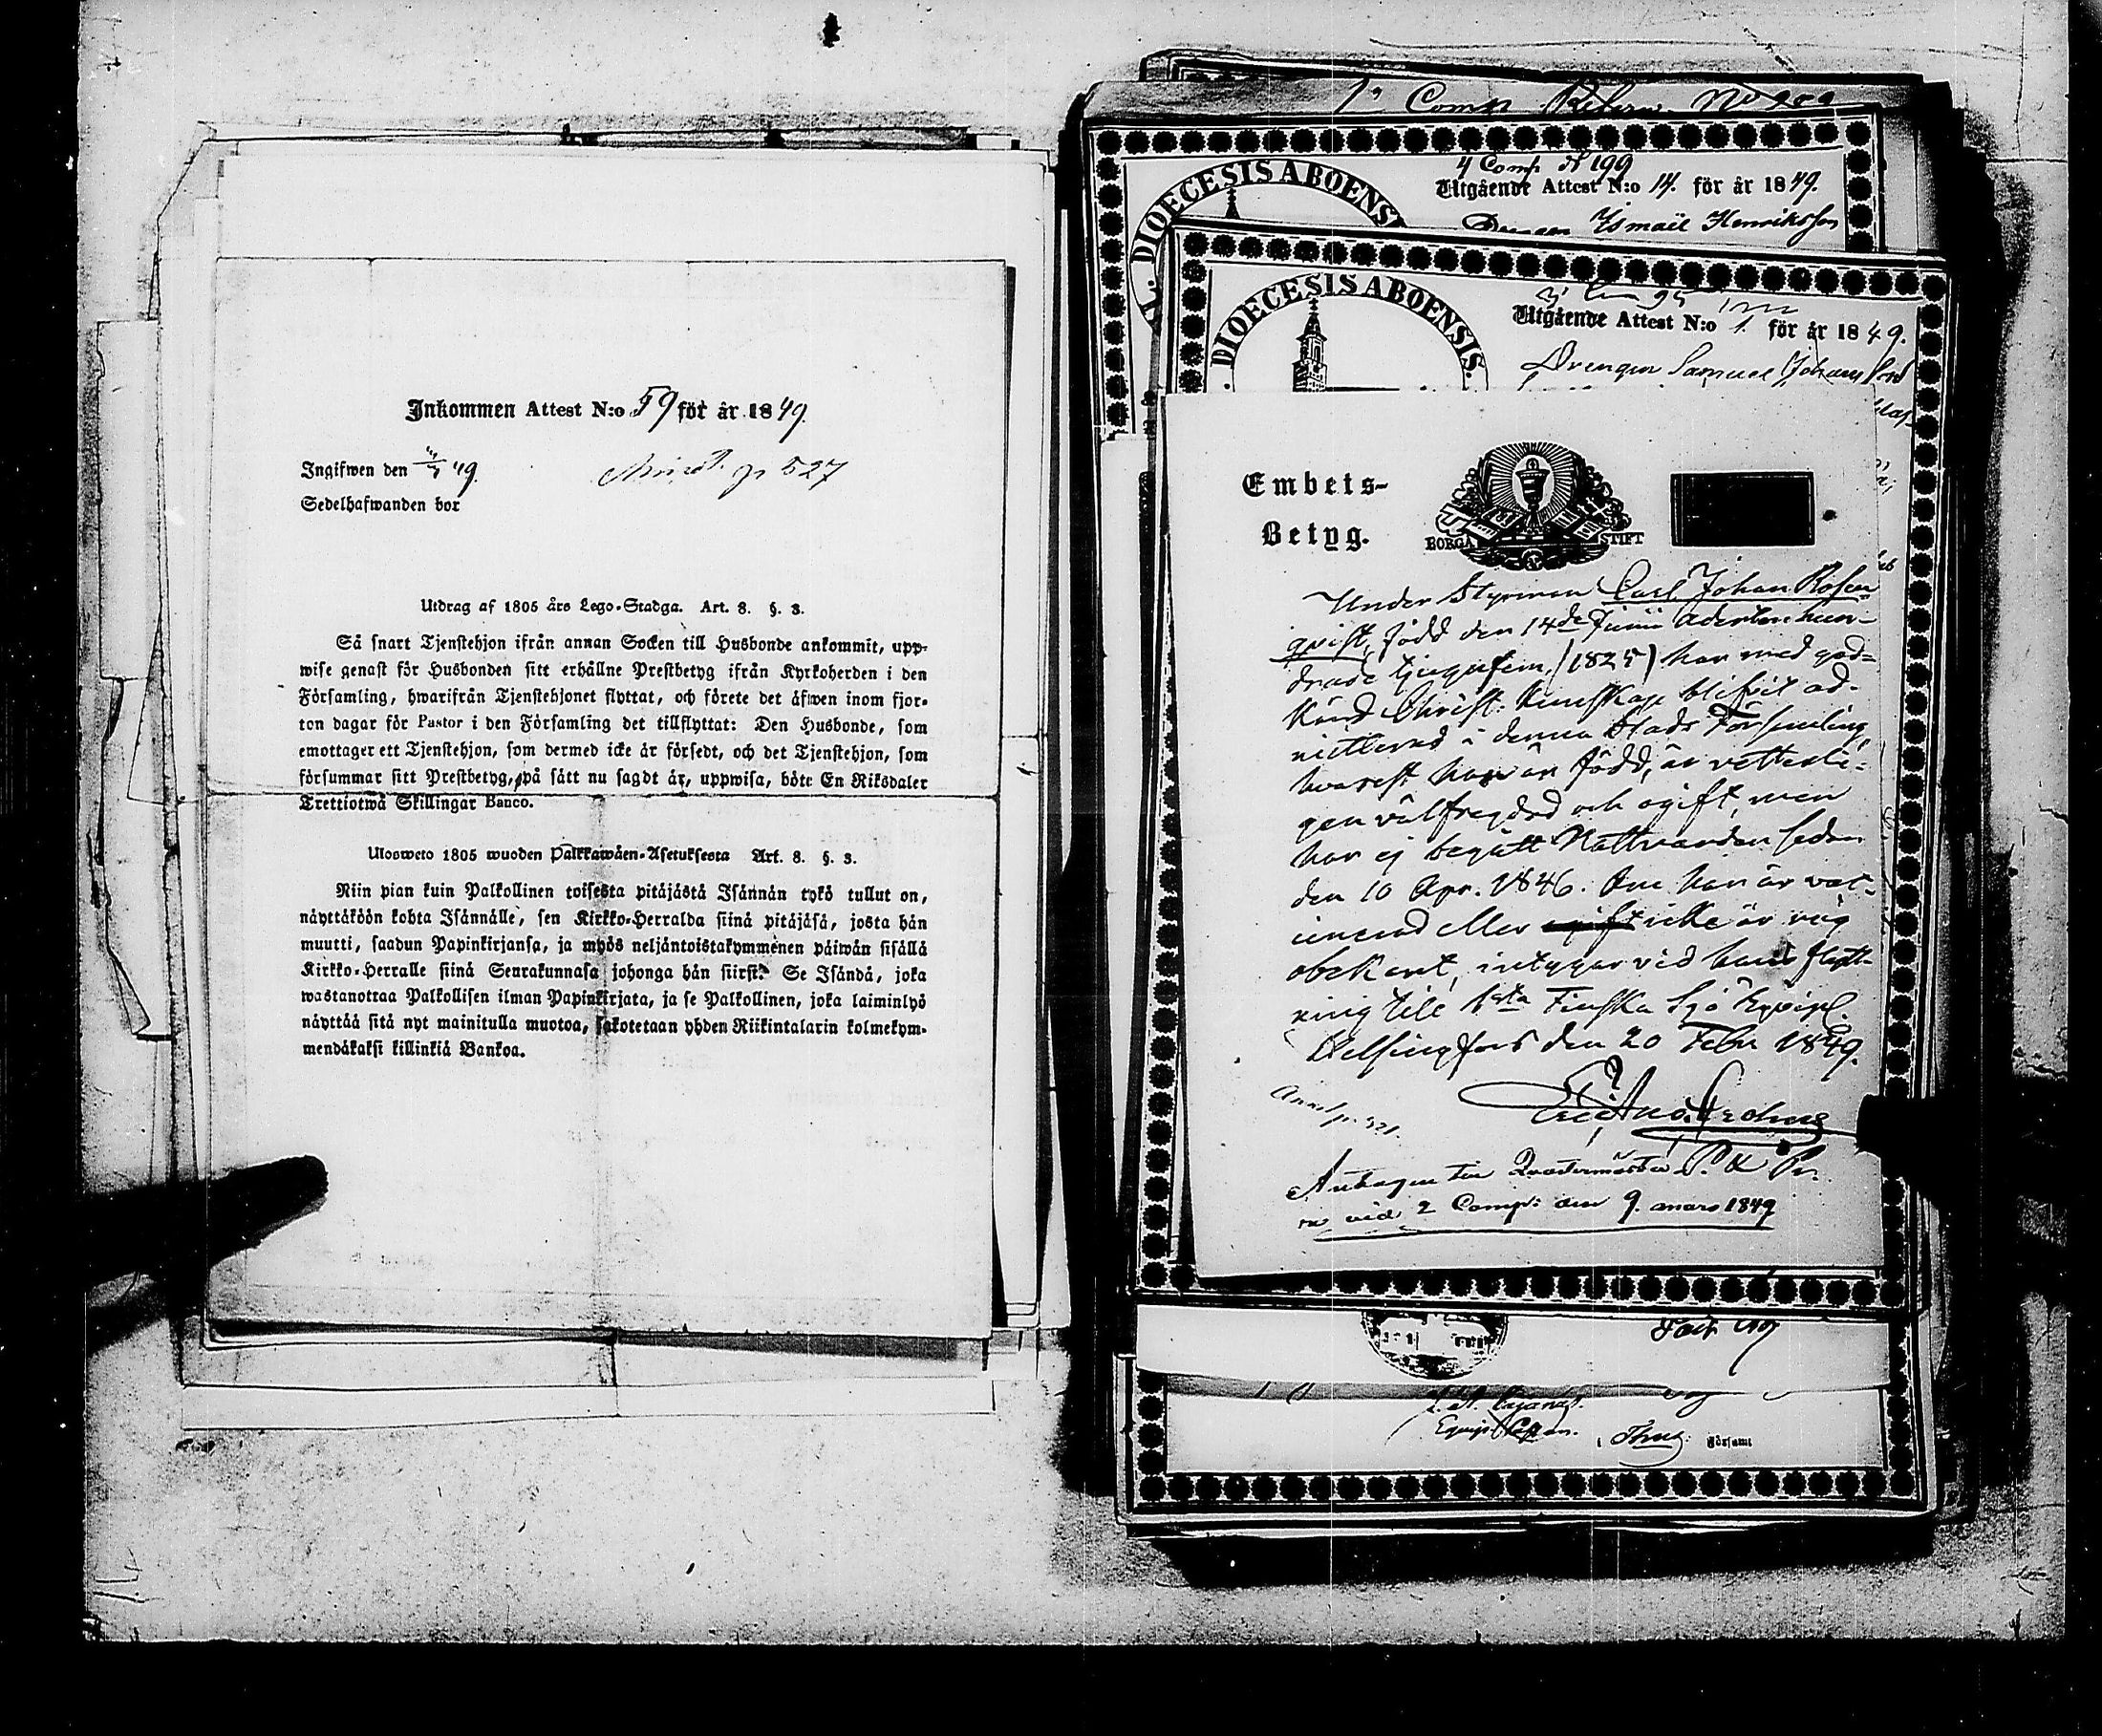 Inkommen Attest N:o 59 för år 1849.
Ingifwen den 49.
527
Sedelhafwanden bor
Utdrag af 1805 års Lego-Stadga. Art. 8. §. 3.
Så snart Tjenstehjon ifrån annan Socken till Husbonde ankommit, upp-
wise genast för Husbonden sitt erhållne Prestbetyg ifrån Kyrkoherden i den
Församling, hwarifrån Tjenstehjonet flyttat, och förete det äfwen inom fjor-
ton dagar för Pastor i den Församling det tillflyttat: Den Husbonde, som
emottager ett Tjenstehjon, som dermed icke är försedt, och det Tjenstehjon, som
försummar sitt Prestbetyg, på sätt nu sagdt är, uppwisa, böte En Riksdaler
Trettiotwå Skillingar Banco.
Ulosweto 1805 wuoden Palkkawäen-Asetuksesta Art. 8. §. 3.
Niin pian kuin Palkollinen toisesta pitäjästä Isännän tykö tullut on,
näyttäköön kohta Isännälle, sen Kirkko-Herralda siinä pitäjäsä, josta hän
muutti, saadun Papinkirjansa, ja myös neljäntoistakymmenen päiwän sisällä
Kirkko-Herralle siinä Seurakunnasa johonga hän siirsi. Se Isändä, joka
wastanottaa Palkollisen ilman Papinkirjata, ja se Palkollinen, joka laiminlyö
näyttää sitä nyt mainitulla muotoa, sakotetaan yhden Riikintalarin kolmekym-
mendäkaksi killinkiä Bankoa.
1a Comp. N:o
4 Comp. N 199
Utgående Attest N:o 14. för år 1849.
DIOECESIS ABOENSI
Drengen Ismaël Henriksson
DIOECESIS ABOENSIS.
Utgående Attest N:o 1. för år 1849.
Drengen Samuel Johansson
Embets-
Betyg.
BORGÅ STIFT
Under Styrman Carl Johan Rosen-
qvist, född den 14de Junii Adertonhun-
drade tjugufem (1825) har med god-
känd Christ. Kunskap blifvit ad-
mitterad i denna Stads Församling,
hvarest han är född, är vetterli-
gen välfrejdad och ogift, men
har ej begått Nattvarden sedan
den 10 Apr. 1846. Om han är vac-
cinerad eller icke är mig
obekant, intygar vid hans flytt-
ning till 1sta Finska Sjö Equipl.
Helsingfors den 20 Febr 1849.
Antagen til Quartermästare
vid 2 Comp: den 9. mars 1849
Equip. Capan.
i Församl